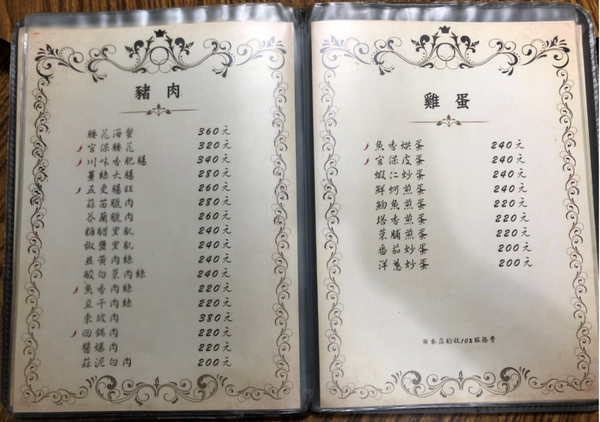 豬肉
腰花海蜇 360元
宮保腰花 320元
川味香肥腸 340元
薑絲大腸 280元
五更腸旺 260元
蒜苗臘肉 280元
芥蘭臘肉 260元
糖醋里肌 240元
椒鹽里肌 240元
韭黃肉絲 240元
酸白菜肉絲 240元
魚香肉絲 220元
豆干肉絲 220元
東坡肉 380元
回鍋肉 220元
醬爆肉 220元
蒜泥白肉 200元
雞蛋
魚香烘蛋 240元
宮保皮蛋 240元
蝦仁炒蛋 240元
鮮蚵煎蛋 240元
魩魚煎蛋 220元
塔香煎蛋 220元
菜脯煎蛋 220元
番茄炒蛋 200元
洋蔥炒蛋 200元
※本店酌收10%服務費